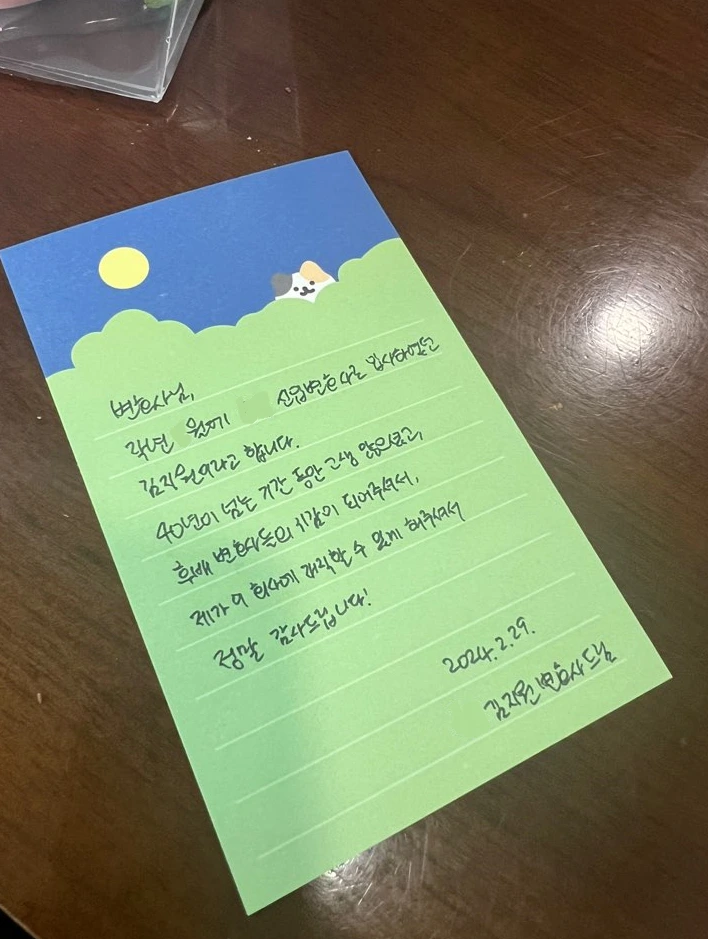 변호사님,
작년 월에 신입변호사로 입사하였던
김지원이라고 합니다.
40년이 넘는 기간 동안 고생 많으셨고,
후배 변호사들의 귀감이 되어주셔서,
제가 이 회사에 재직할 수 있게 해주셔서
정말 감사드립니다!
2024. 2. 29.
김지원 변호사 드림